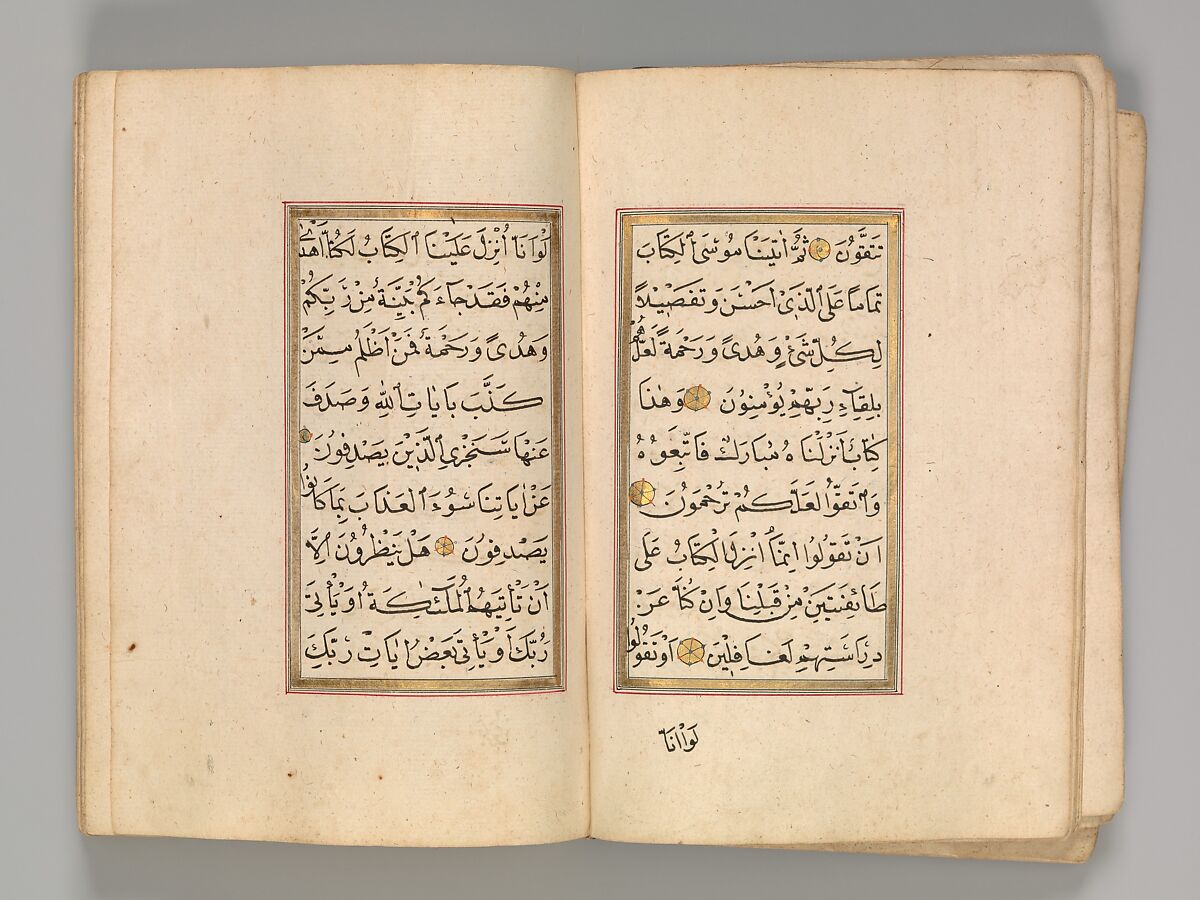 تَتَّقُونَ ثُمَّ اٰتَيْنَا مُوسَى ٱلْكِتَابَ
تَمَامًا عَلَى ٱلَّذِىٓ اَحْسَنَ وَتَفْصِيْلاً
لِكُلِّ شَىْءٍ وَهُدًى وَرَحْمَةً لَعَلَّهُمْ
بِلِقَآءِ رَبِّهِمْ يُؤْمِنُونَ وَهٰذَا
كِتَابٌ اَنْزَلْنَاهُ مُبَارَكٌ فَاتَّبِعُوهُ
وَاتَّقُوا لَعَلَّكُمْ تُرْحَمُونَ
اَنْ تَقُولُوا اِنَّمَآ اُنْزِلَ الْكِتَابُ عَلٰى
طَآئِفَتَيْنِ مِنْ قَبْلِنَا وَاِنْ كُنَّا عَنْ
دِرَاسَتِهِمْ لَغَافِلِيْنَ اَوْ تَقُولُوا
لَوْ اَنَّا
لَوْ اَنَّآ اُنْزِلَ عَلَيْنَا ٱلْكِتَابُ لَكُنَّآ اَهْدٰى
مِنْهُمْ فَقَدْ جَآءَكُمْ بَيِّنَةٌ مِنْ رَبِّكُمْ
وَهُدًى وَرَحْمَةٌ فَمَنْ اَظْلَمُ مِمَّنْ
كَذَّبَ بِاٰيَاتِ ٱللّٰهِ وَصَدَفَ
عَنْهَا سَنَجْزِى ٱلَّذِيْنَ يَصْدِفُونَ
عَنْ اٰيَاتِنَا سُوٓءَ ٱلْعَذَابِ بِمَا كَانُوا
يَصْدِفُونَ هَلْ يَنْظُرُونَ اِلَّآ
اَنْ تَأْتِيَهُمُ ٱلْمَلٰٓئِكَةُ اَوْ يَأْتِىَ
رَبُّكَ اَوْ يَأْتِىَ بَعْضُ اٰيَاتِ رَبِّكَ